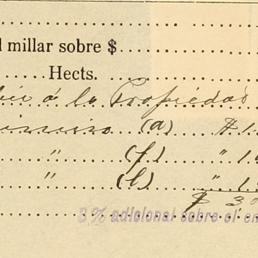 l millar sobre $
Hects.
á la Propiedad
(a) $ 1
" (f) " 1
" (l) " 1
$ 3
3% adicional sobre el